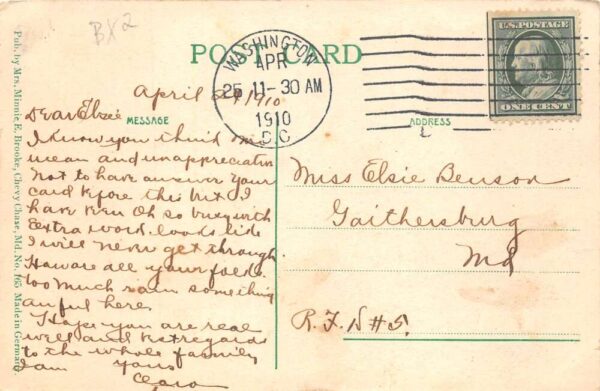 BX2
POST CARD
WASHINGTON
APR
25 11-30 AM
1910
D.C.
U.S. POSTAGE
ONE CENT
April 24, 1910.
Dear Elsie
MESSAGE
ADDRESS
I know you think me
mean and unappreciative
not to have answer your
card before this but I
have been Oh so busy with
Extra work. looks like
I will never get through
How are all your folks.
too much rain something
awful here.
Hope you are real
well and best regards
to the whole family
I am Yours
Clara
Miss Elsie Benson
Gaithersburg
Md
R.F.D #5.
Pub. by Mrs. Minnie E. Brooke, Chevy Chase, Md. No. 165 Made in Germany.